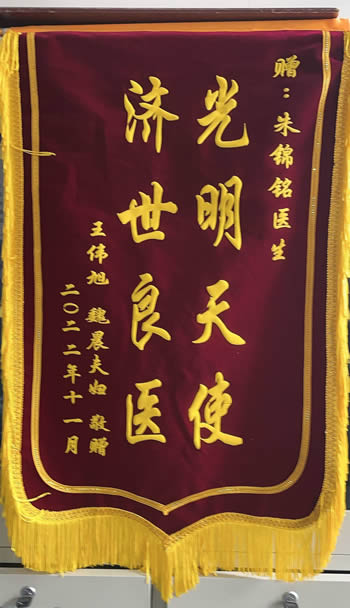 赠：朱锦铭医生
光明天使
济世良医
王伟旭 魏晨夫妇 敬赠
二〇二二年十一月